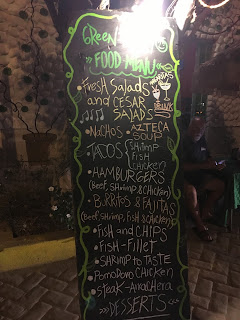 GREEN
» FOOD MENU «
• FRESH Salads
and CESAR
SALADS
DRINK
• NACHOS • AZTECA
SOUP
• TACOS SHRIMP
FISH
CHICKEN
• HAMBURGERS
(BEEF, SHRIMP & CHICKEN)
• BURRITOS & FAJITAS
(BEEF, SHRIMP, FISH & CHICKEN)
• FISH and CHIPS
• FISH - FILLET
• SHRIMP TO TASTE
• POMODORO CHICKEN
• STEAK - ARRACHERA
»» DESSERTS